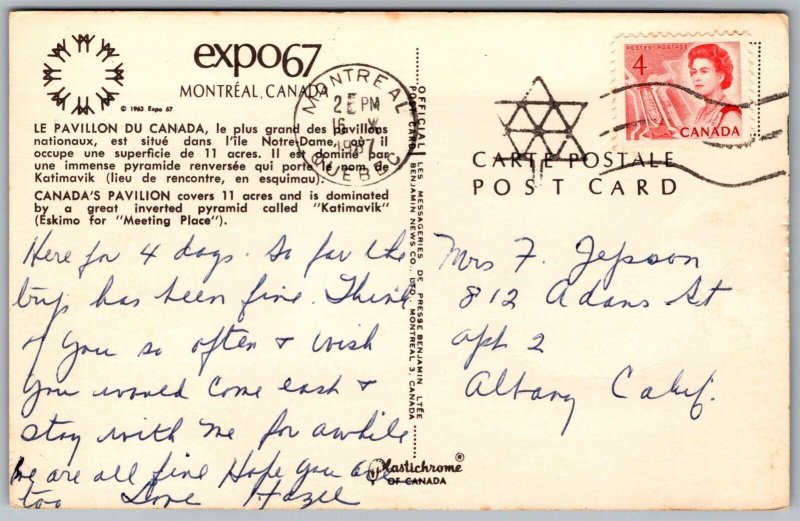 expo67
MONTRÉAL, CANADA
© 1963 Expo 67
LE PAVILLON DU CANADA, le plus grand des pavillons
nationaux, est situé dans l'île Notre-Dame, où il
occupe une superficie de 11 acres. Il est dominé par
une immense pyramide renversée qui porte le nom de
Katimavik (lieu de rencontre, en esquimau).
CANADA'S PAVILION covers 11 acres and is dominated
by a great inverted pyramid called "Katimavik"
(Eskimo for "Meeting Place").
Here for 4 days. So far the
trip has been fine. Think
of you so often & wish
you would come east &
stay with me for awhile
We are all fine Hope you are
too Love Hazel
MONTREAL
PM
16
1967
QUEBEC
OFFICIAL LES MESSAGERIES DE PRESSE BENJAMIN LTÉE
POST CARD BENJAMIN NEWS CO. LTD. MONTREAL 3, CANADA
Plastichrome®
OF CANADA
POSTES POSTAGE
4
CANADA
CARTE POSTALE
POST CARD
Mrs F. Jepson
812 Adams St
Apt 2
Albany Calif.